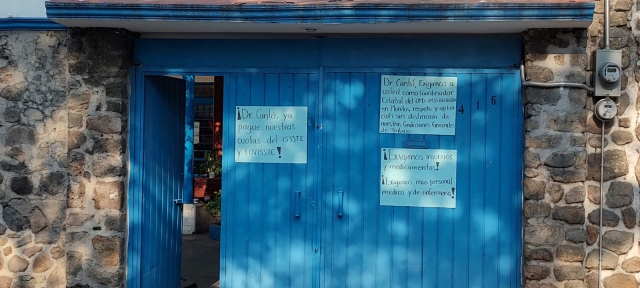 ¡Dr. Cantú, ya
pague nuestras
cuotas del ISSSTE
y FOVISSSTE!
Dr. Cantú, Exigimos a
usted como Coordinador
Estatal del OPD IMSS BIENESTAR
en Morelos, respeto y aplica-
ción sin distinción de
nuestras Condiciones Generales
de Trabajo
416
¡Exigimos insumos
y medicamentos!
¡Exigimos más personal
médico y de enfermería!